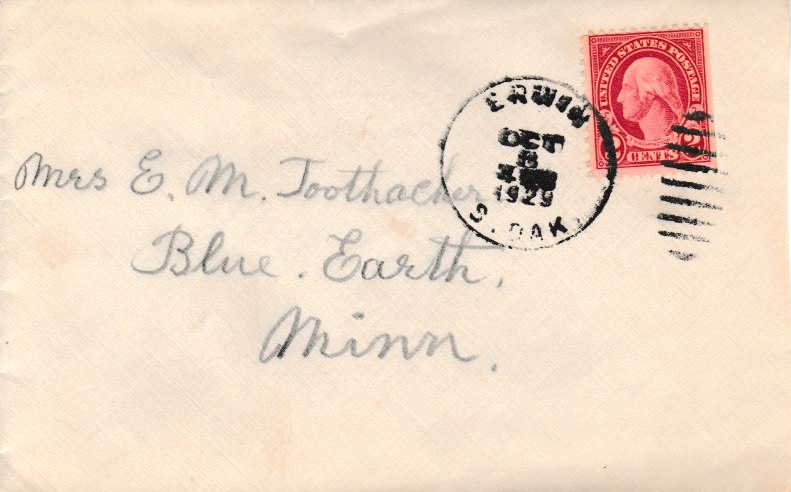 UNITED STATES POSTAGE
2 CENTS 2
ERWIN
OCT
8
1929
S. DAK.
Mrs E. M. Toothacher
Blue. Earth,
Minn.